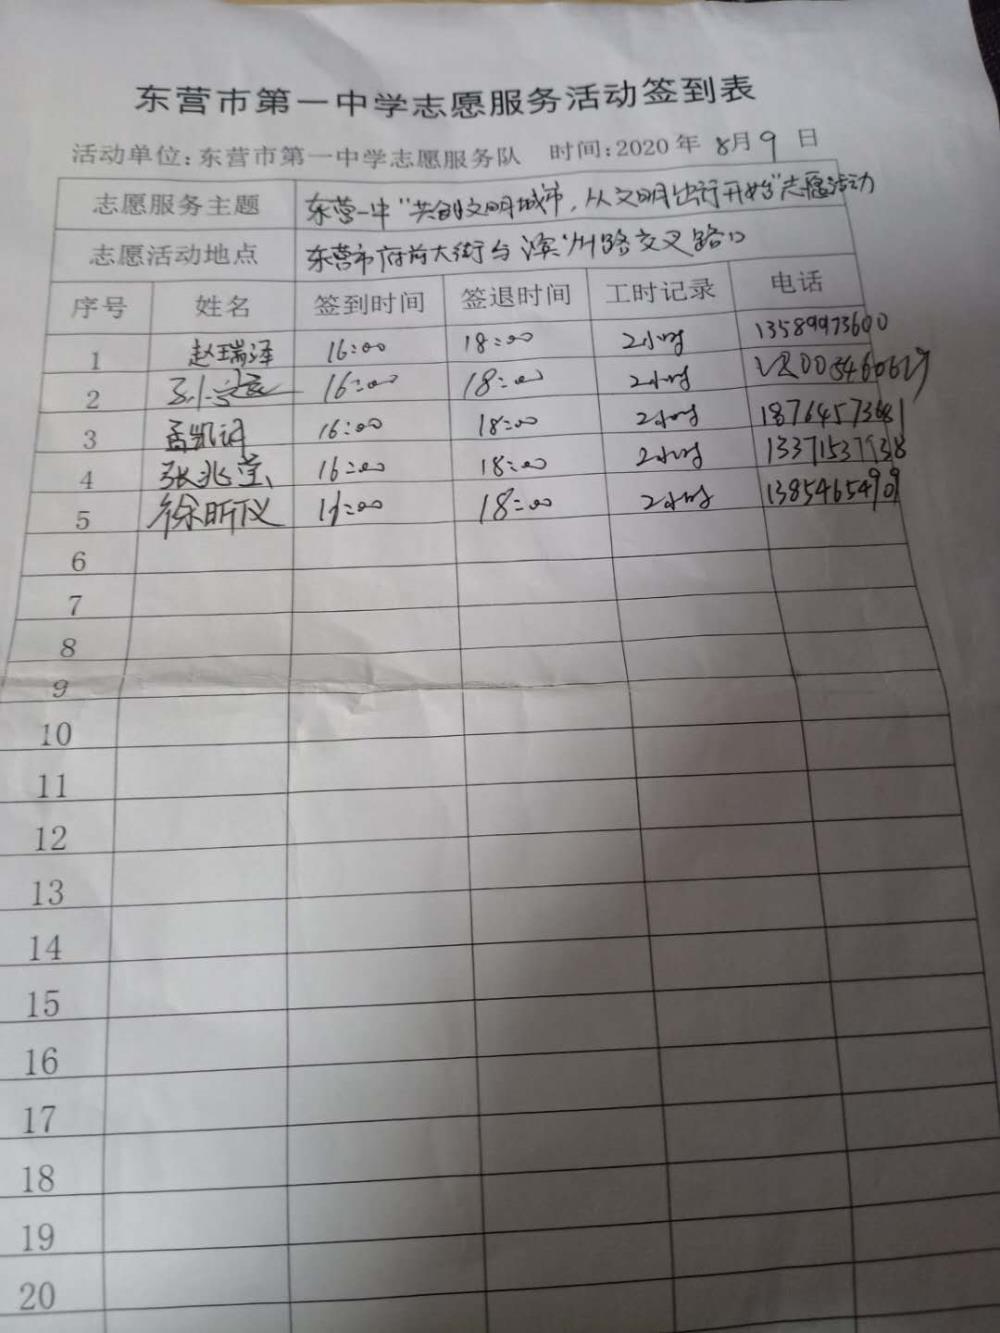 东营市第一中学志愿服务活动签到表
活动单位:东营市第一中学志愿服务队 时间:2020年8月9日
志愿服务主题 东营一中“共创文明城市,从文明出行开始”志愿活动
志愿活动地点 东营市府前大街与滨州路交叉路口
序号 姓名 签到时间 签退时间 工时记录 电话
1 赵瑞泽 16:00 18:00 2小时 13589973600
2 16:00 18:00 2小时
3 孟凯诗 16:00 18:00 2小时 18764573681
4 张兆莹 16:00 18:00 2小时 13371537938
5 徐昕仪 18:00 2小时 13854654909
6
7
8
9
10
11
12
13
14
15
16
17
18
19
20